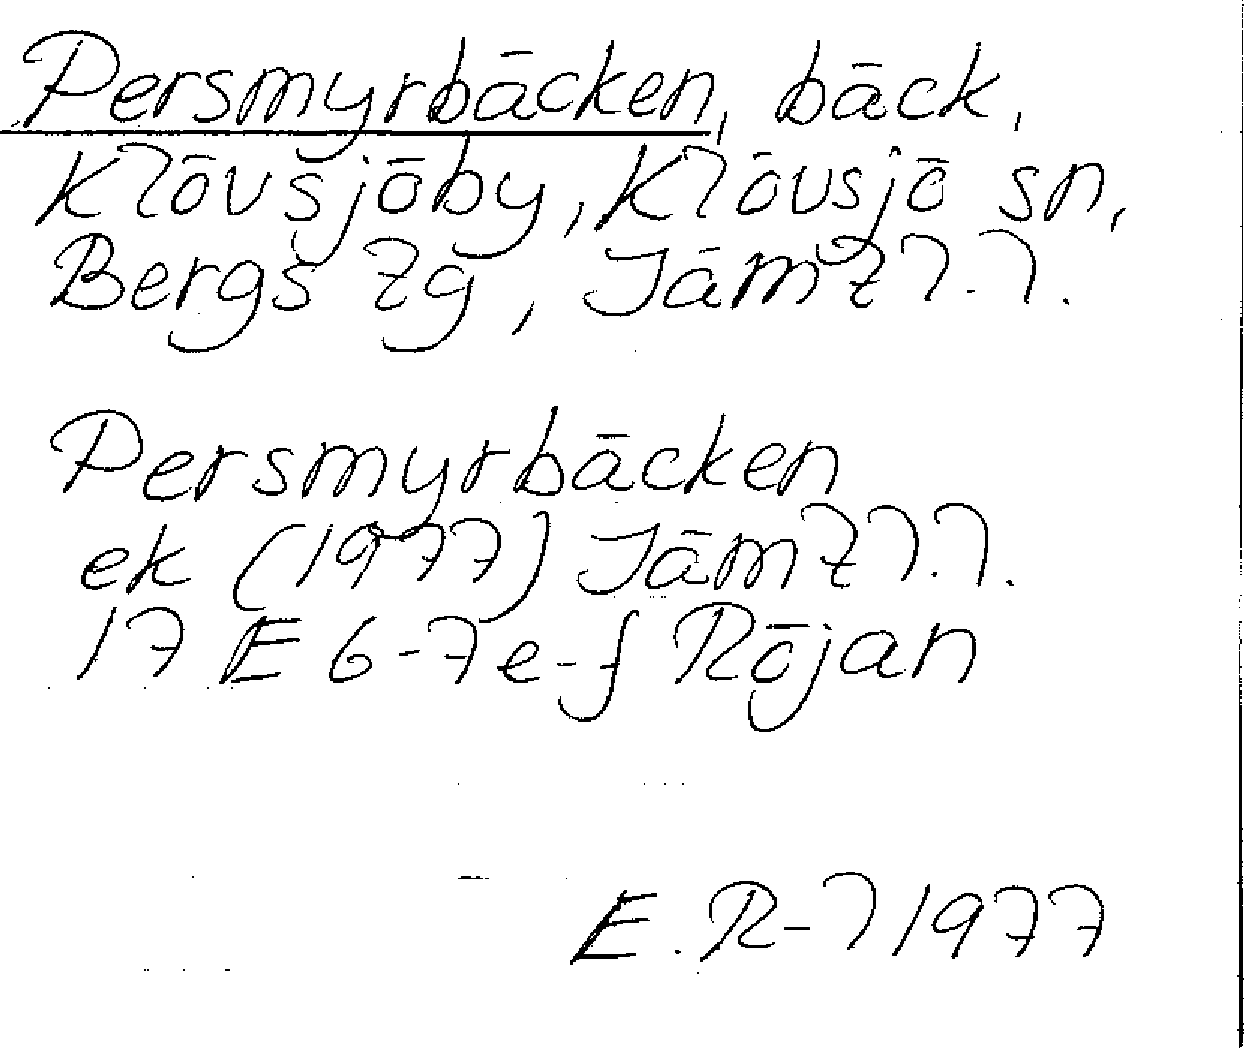 Persmyrbäcken, bäck,
Klövsjöby, Klövsjö sn,
Bergs tg, Jämtl.l.
Persmyrbäcken
ek (1977) Jämtl.l.
17 E 6-7e-f Röjan
E.R-l 1977